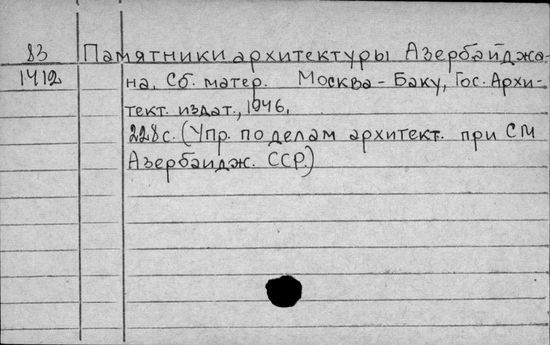 83 Памятники архитектуры Азербайджа-
1412 на, Сб. матер. Москва-Баку, Гос. Архи-
тект. издат., 1946,
228с. (Упр. по делам архитект. при СМ
Азербайдж. ССР.)